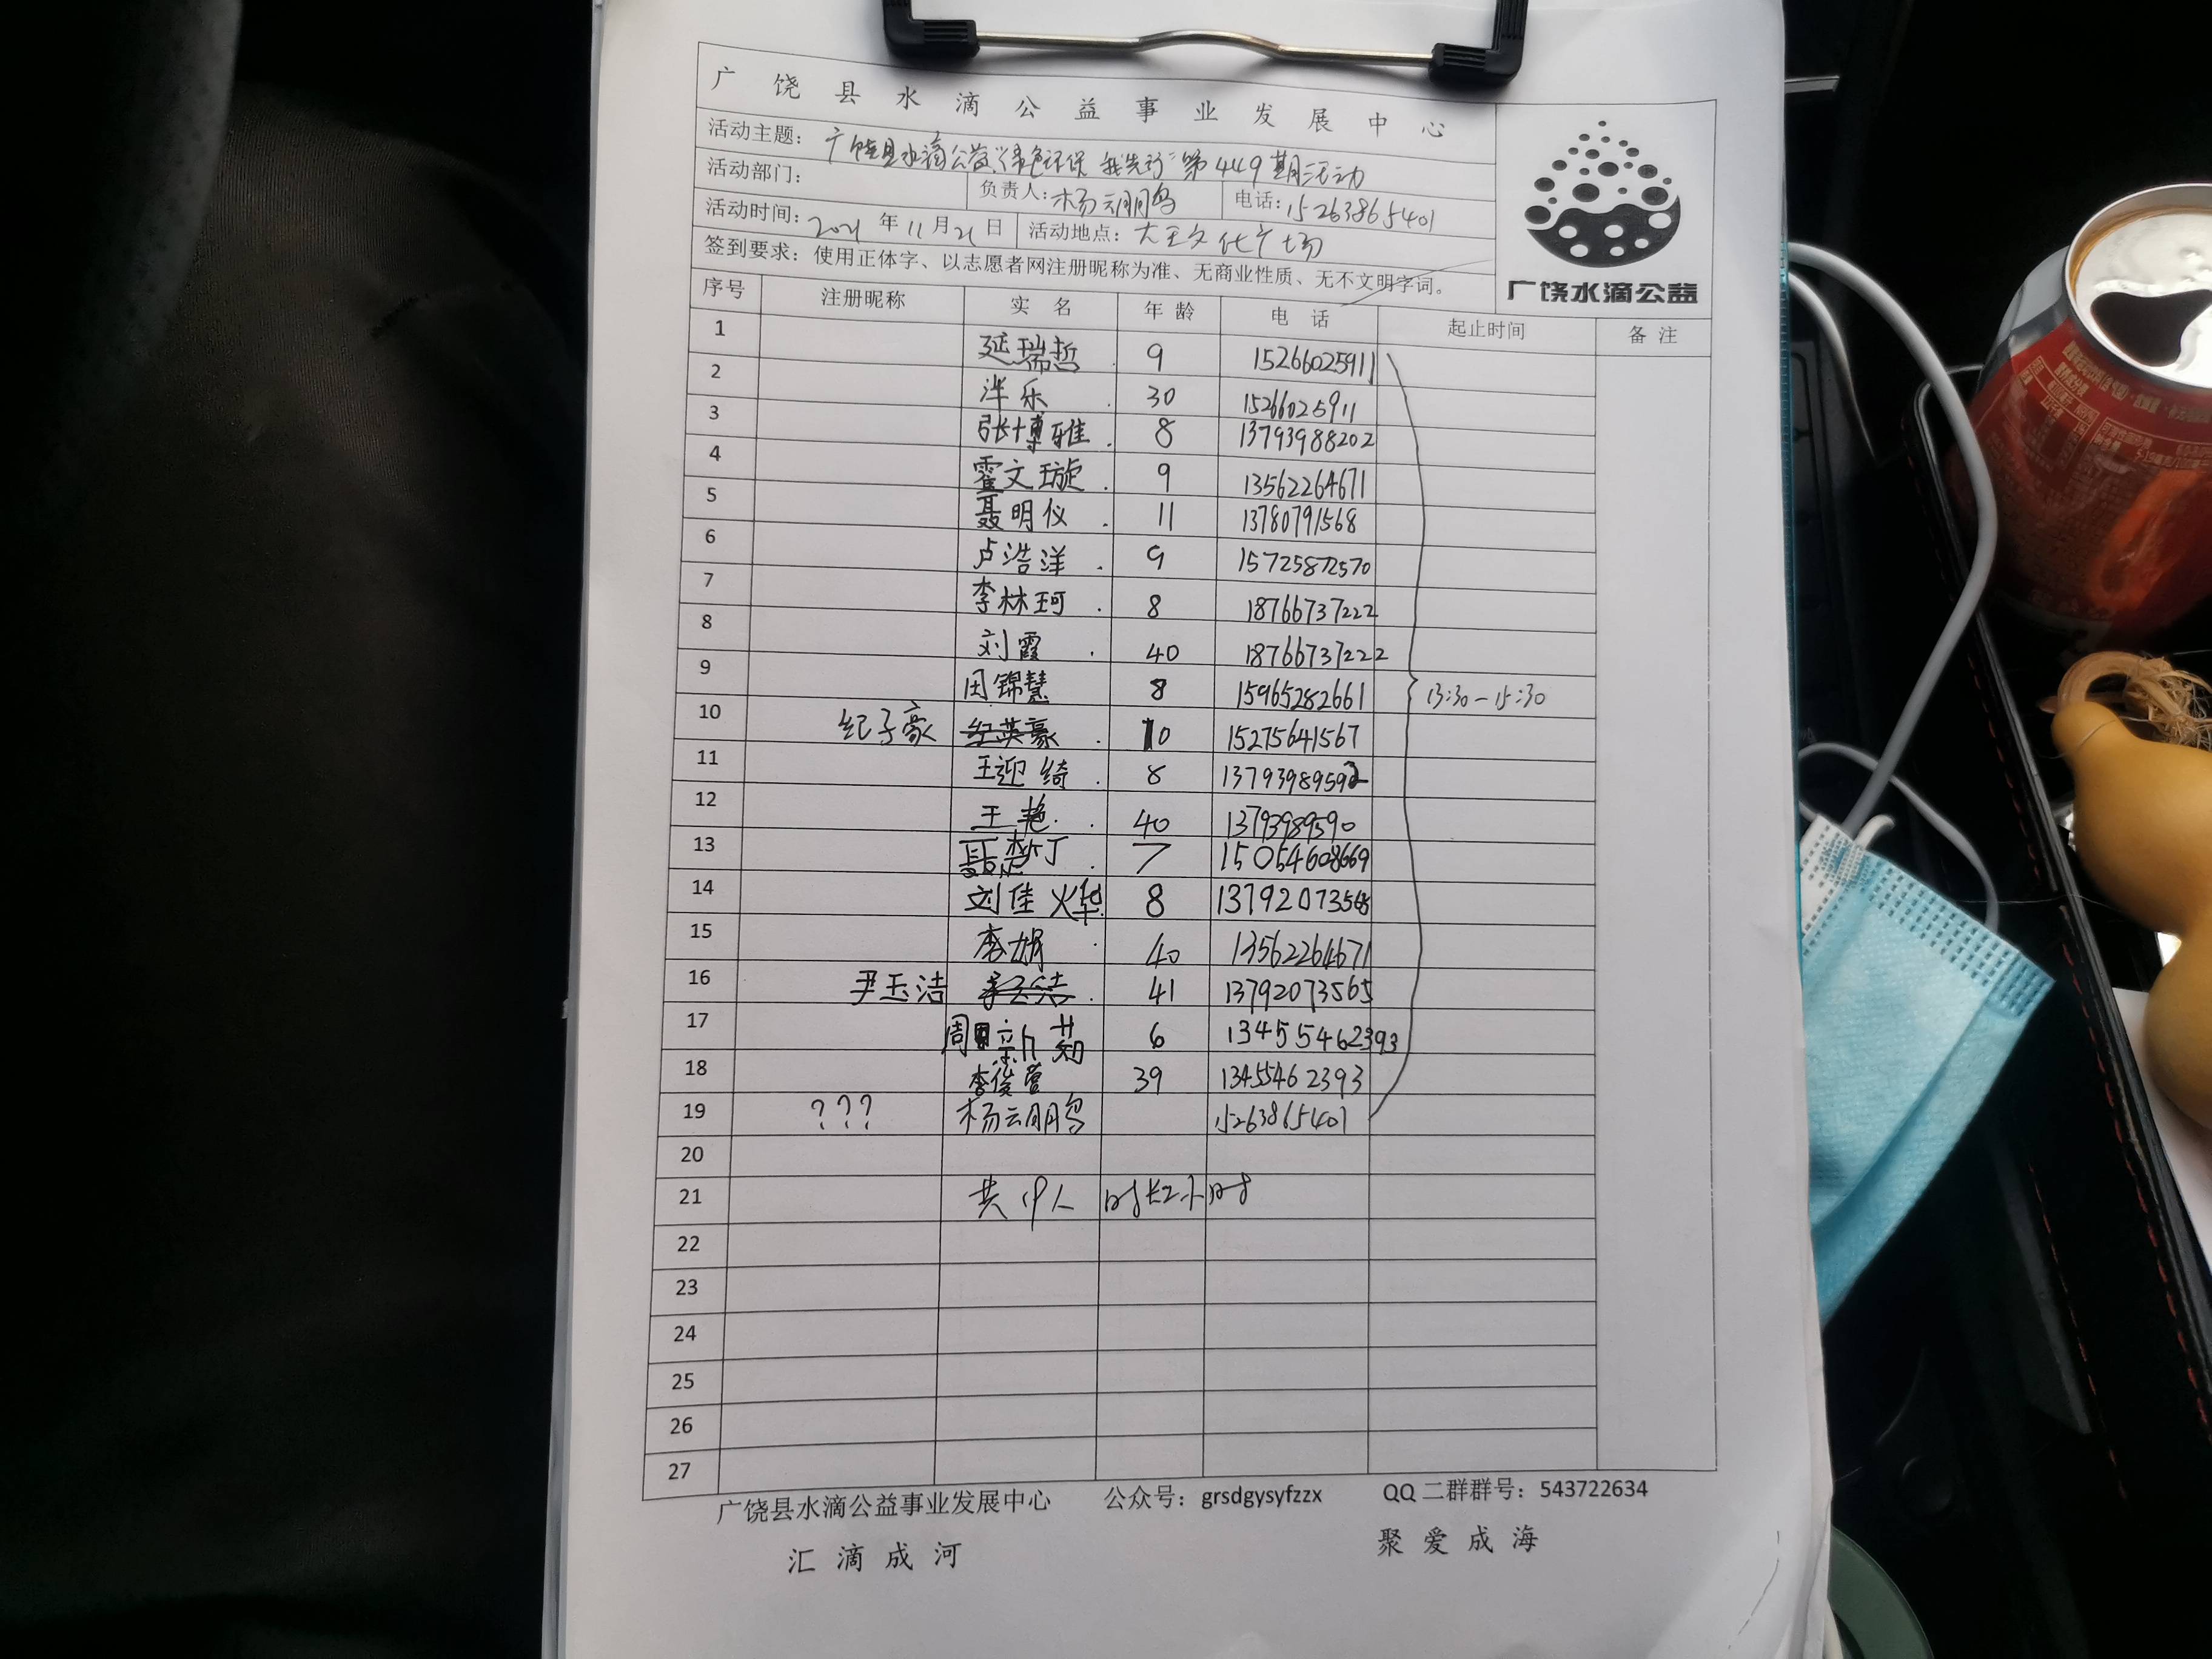 广饶县水滴公益事业发展中心
活动主题：广饶县水滴公益“绿色环保 我先行”第449期活动
活动部门： 负责人：杨云鹏 电话：15263865401
活动时间：2021年11月21日 活动地点：大王文化广场
签到要求：使用正体字、以志愿者网注册昵称为准、无商业性质、无不文明字词。
广饶水滴公益
序号 注册昵称 实名 年龄 电话 起止时间 备注
1 延瑞哲 9 15266025911
2 乐 30 15266025911
3 张博雅 8 13793988202
4 霍文璇 9 13562264671
5 聂明仪 11 13780791568
6 卢浩洋 9 15725872570
7 李林珂 8 18766737222
8 刘霞 40 18766737222
9 田锦慧 8 15965282661 13:30-15:30
10 纪子豪 纪英豪 10 15275641567
11 王迎绮 8 13793989592
12 王艳 40 13793989590
13 7 15054608669
14 刘佳烨 8 13792073565
15 李娟 40 13562264671
16 尹玉洁 41 13792073565
17 周新茹 6 13455462393
18 李俊萱 39 13455462393
19 ??? 杨云鹏 15263865401
20
21 共19人 时长2小时
22
23
24
25
26
27
广饶县水滴公益事业发展中心 公众号：grsdgysyfzzx QQ二群群号：543722634
汇滴成河 聚爱成海